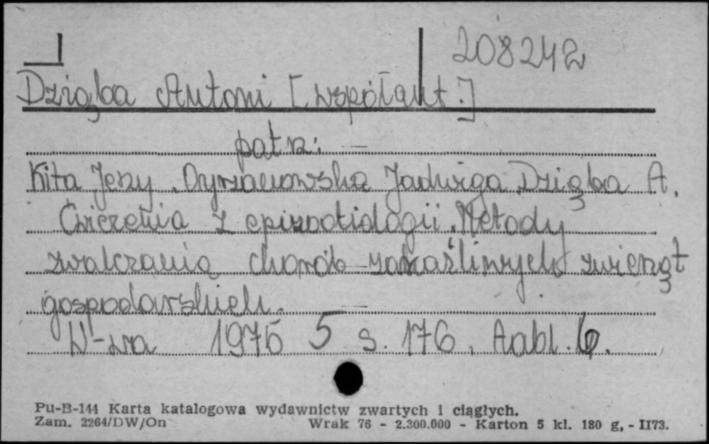 208242
Dziąba Antoni [współaut.]
patrz:
Kita Jerzy, Oyrzanowska Jadwiga, Dziąba A.
Ćwiczenia z epizootiologii. Metody
zwalczania chorób zakaźliwych zwierząt
gospodarskich.
W-wa 1975 s. 176,
Pu-B-144 Karta katalogowa wydawnictw zwartych i ciągłych.
Zam. 2264/DW/On Wrak 76 - 2.300.000 - Karton 5 kl. 180 g, - II73.